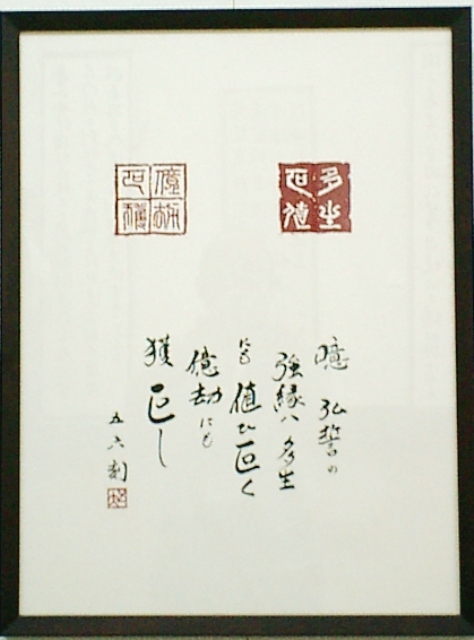 多生
叵値
億劫
叵獲
噫 弘誓の
強縁ハ多生
にも値ひ叵く
億劫にも
獲叵し
五六刻